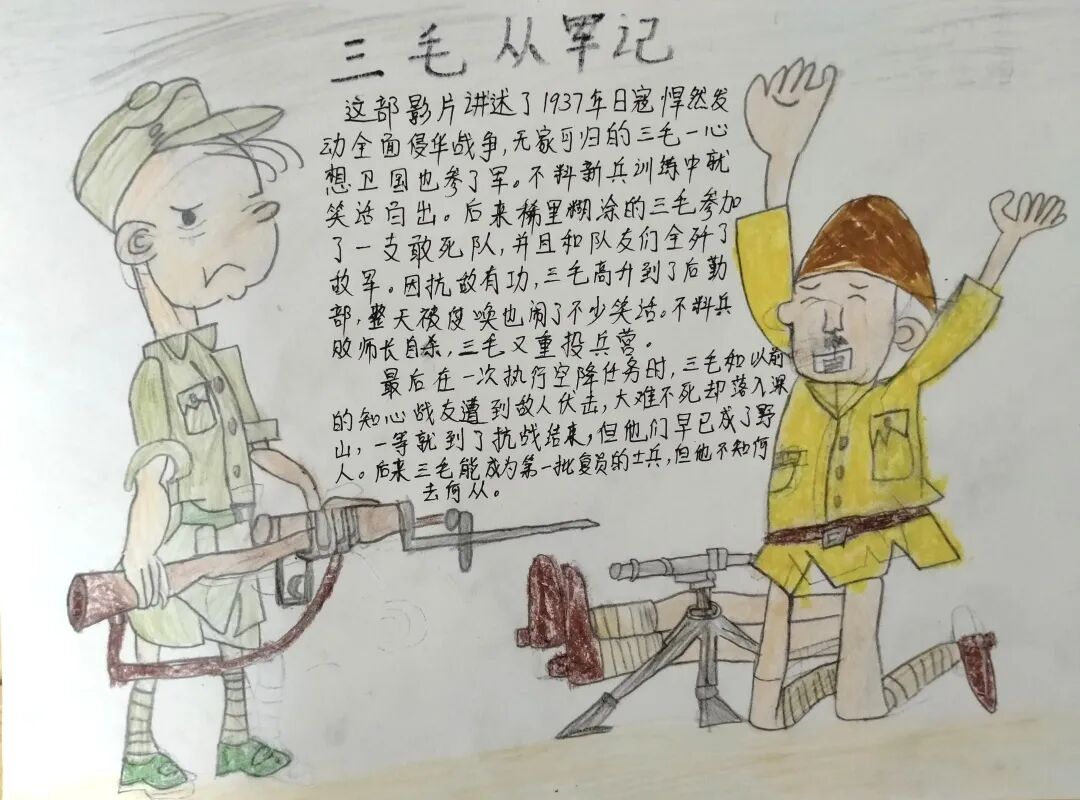 三毛从军记
这部影片讲述了1937年日寇悍然发
动全面侵华战争,无家可归的三毛一心
想卫国也参了军。不料新兵训练中就
笑话百出。后来稀里糊涂的三毛参加
了一支敢死队,并且和队友们全歼了
敌军。因抗敌有功,三毛高升到了后勤
部,整天被使唤也闹了不少笑话。不料兵
败师长自杀,三毛又重投兵营。
最后在一次执行空降任务时,三毛和以前
的知心战友遭到敌人伏击,大难不死却落入深
山,一等就到了抗战结束,但他们早已成了野
人。后来三毛能成为第一批复员的士兵,但他不知何
去何从。